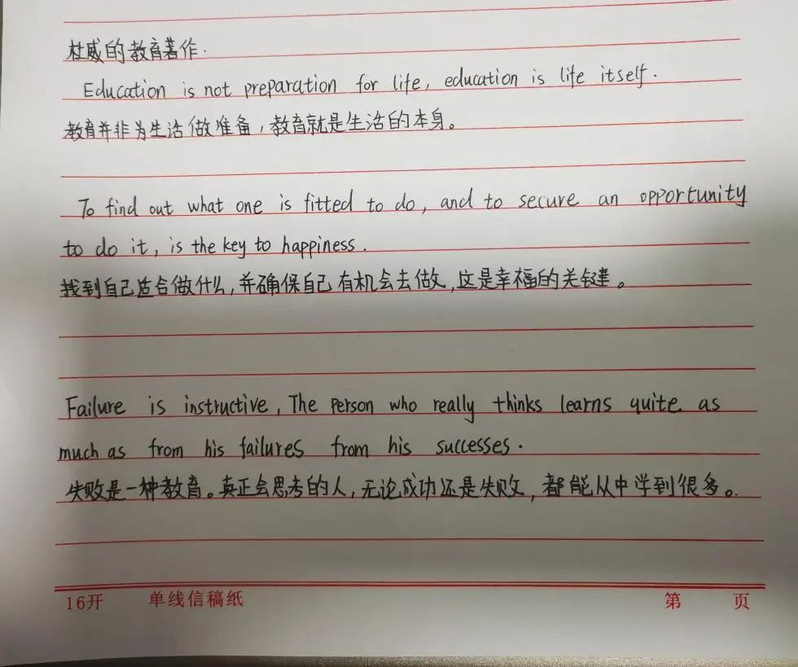 杜威的教育著作.
Education is not preparation for life, education is life itself.
教育并非为生活做准备，教育就是生活的本身。
To find out what one is fitted to do, and to secure an opportunity
to do it, is the key to happiness.
找到自己适合做什么,并确保自己有机会去做,这是幸福的关键。
Failure is instructive, The person who really thinks learns quite as
much as from his failures from his successes.
失败是一种教育。真正会思考的人,无论成功还是失败,都能从中学到很多。
16开 单线信稿纸 第 页